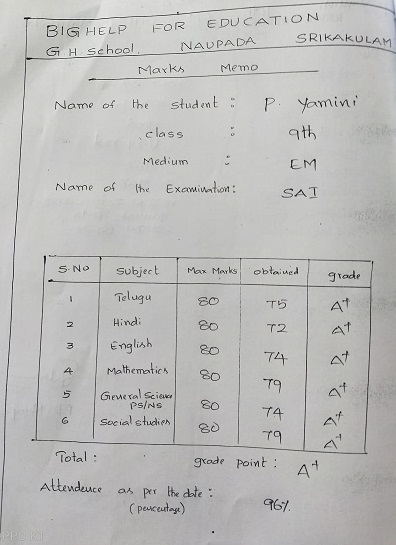 BIG HELP FOR EDUCATION
G.H. School, NAUPADA SRIKAKULAM
Marks Memo
Name of the Student : P. Yamini
class : 9th
Medium : EM
Name of the Examination : SAI
S.NO Subject Max Marks obtained grade
1 Telugu 80 75 A+
2 Hindi 80 72 A+
3 English 80 74 A+
4 Mathematics 80 79 A+
5 General Science PS/NS 80 74 A+
6 Social studies 80 79 A+
Total : grade point : A+
Attendence as per the date : 96%
(percentage)